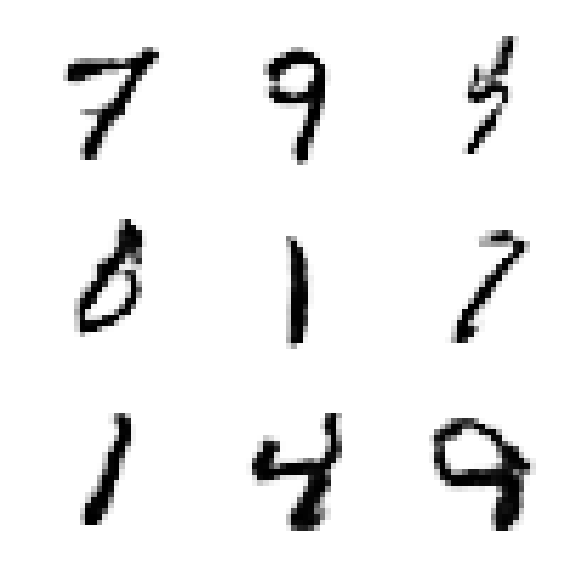 7 9 5
0 1 7
1 4 9